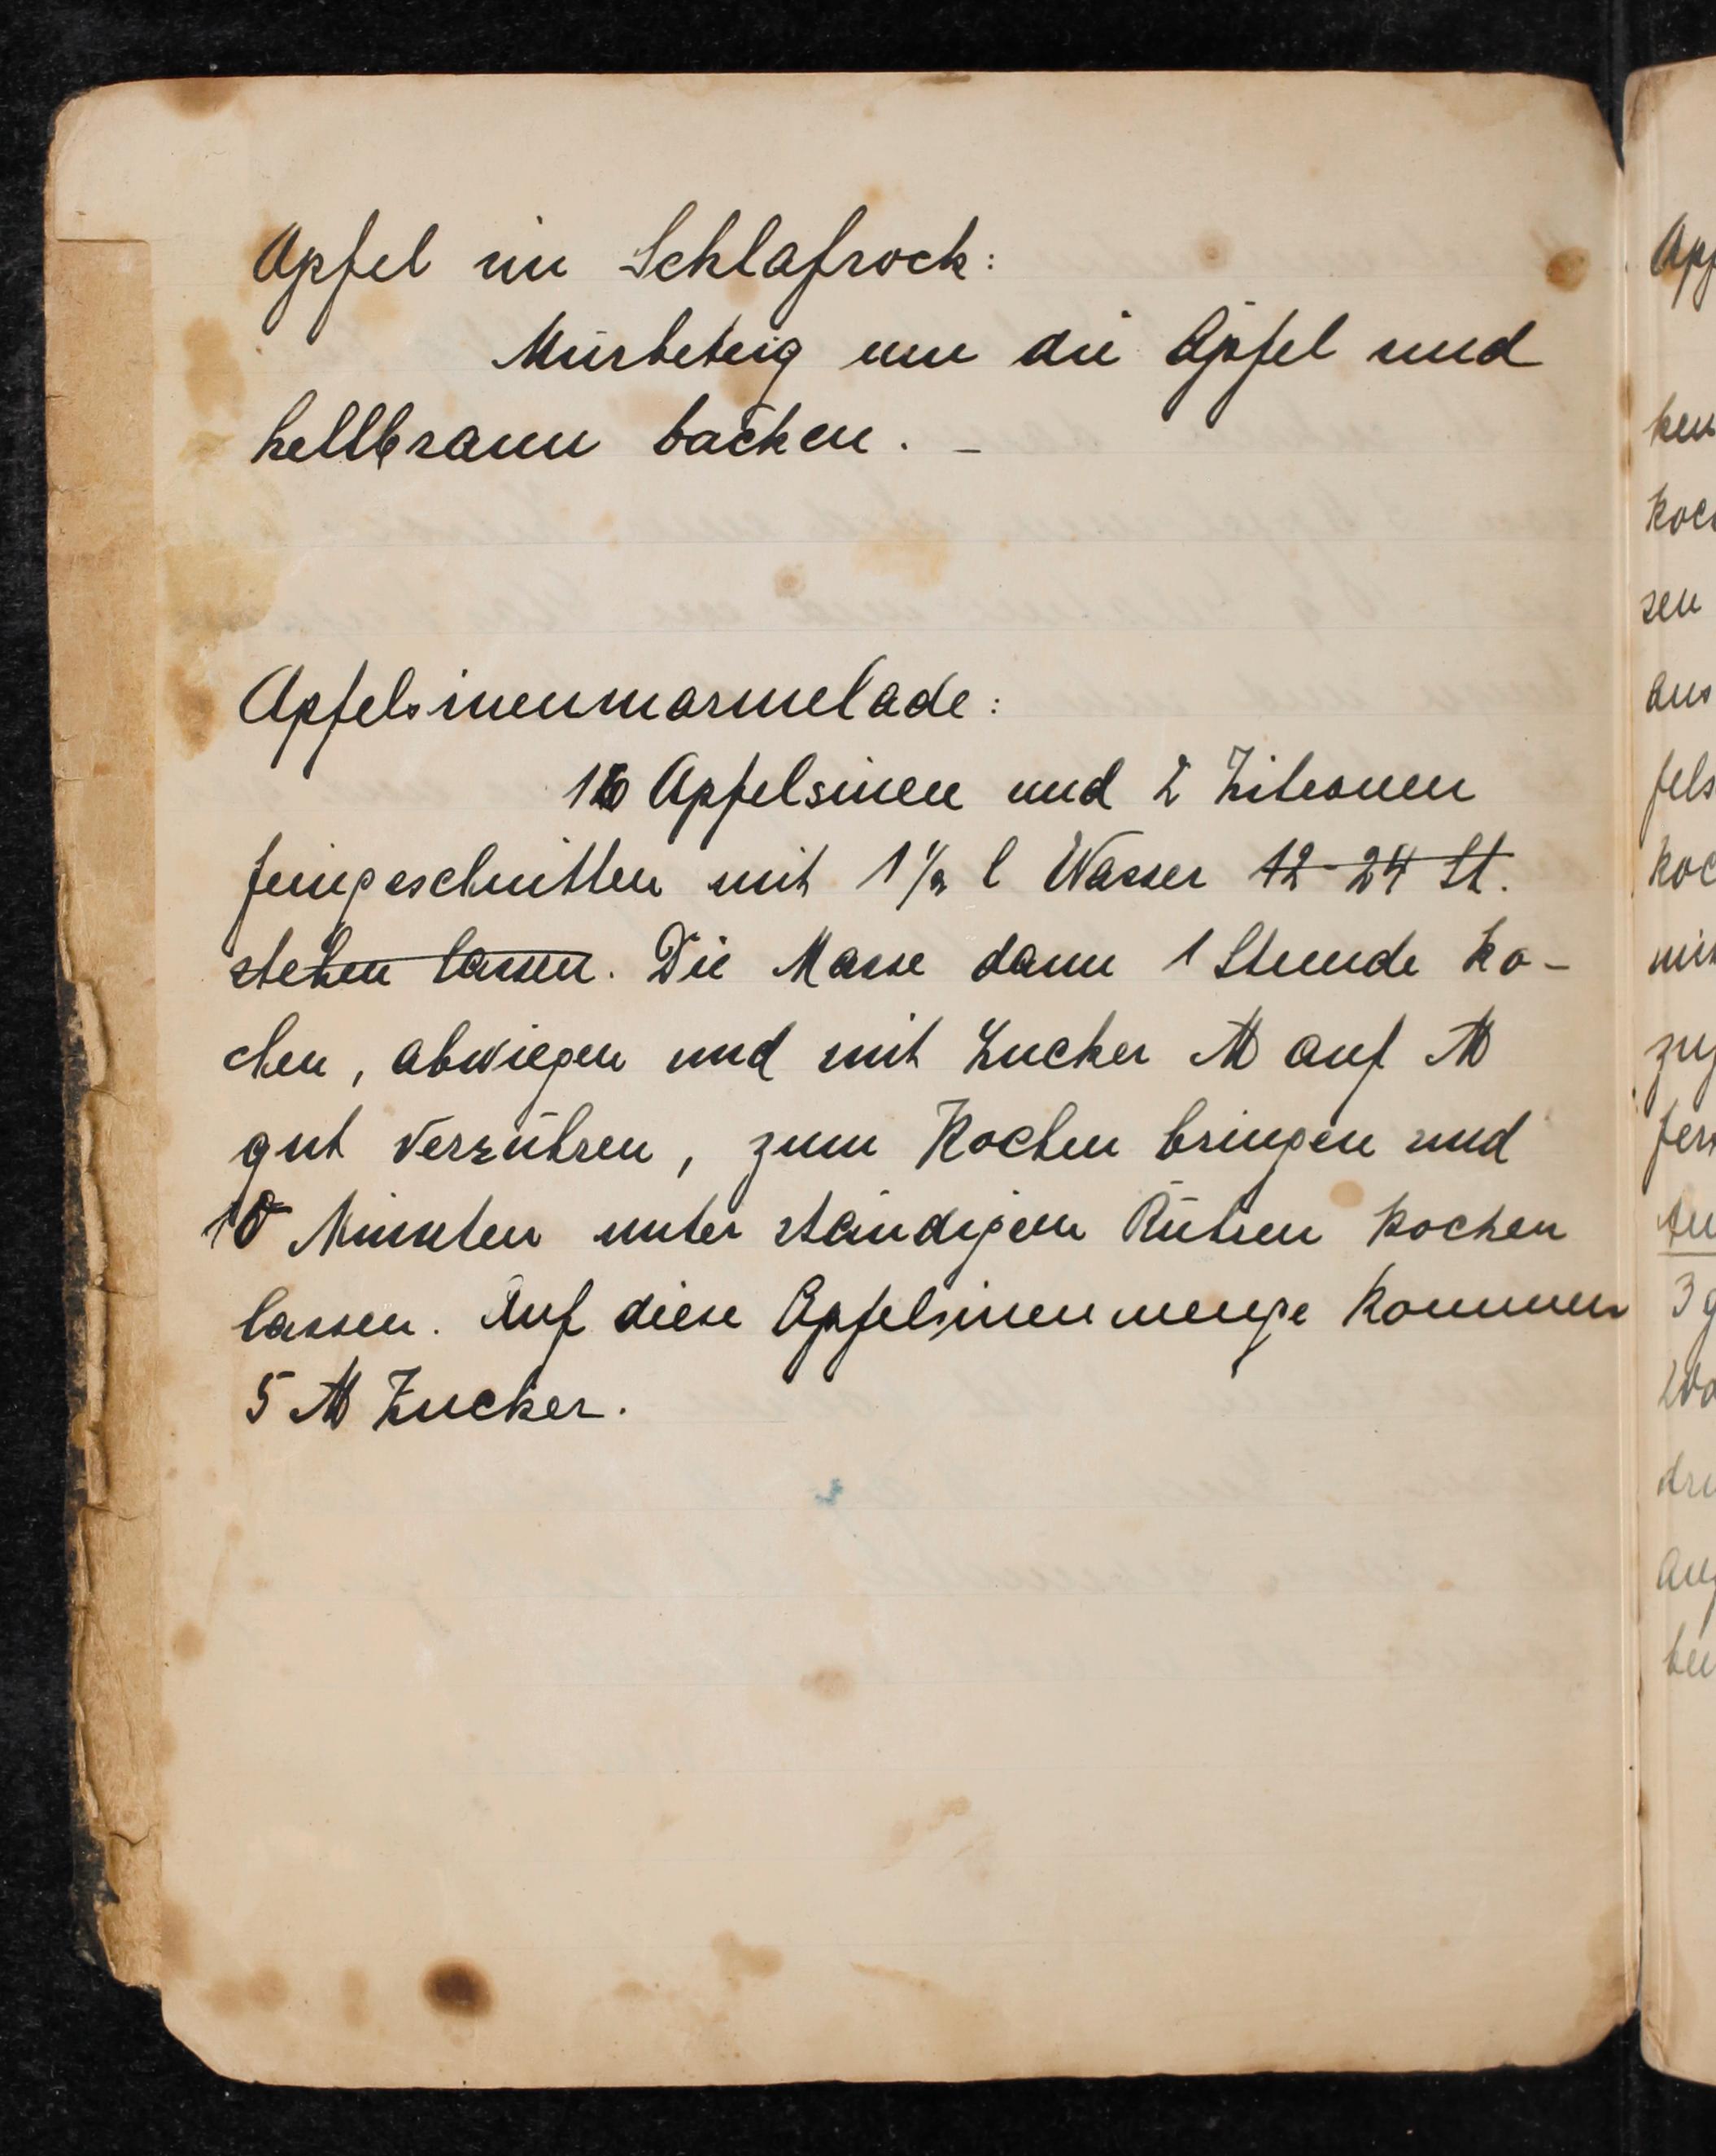 Apfel im Schlafrock:
Mürbeteig um die Äpfel und
hellbraun backen. –
Apfelsinenmarmelade:
Apfelsinen und 2 Zitronen
feingeschnitten mit 1 1/2 l Wasser 12-24 St.
stehen lassen. Die Masse dann 1 Stunde ko-
chen, abwiegen und mit Zucker ℔ auf ℔
gut verrühren, zum Kochen bringen und
10 Minuten unter ständigem Rühren kochen
lassen. Auf diese Apfelsinenmenge kommen
5 ℔ Zucker.